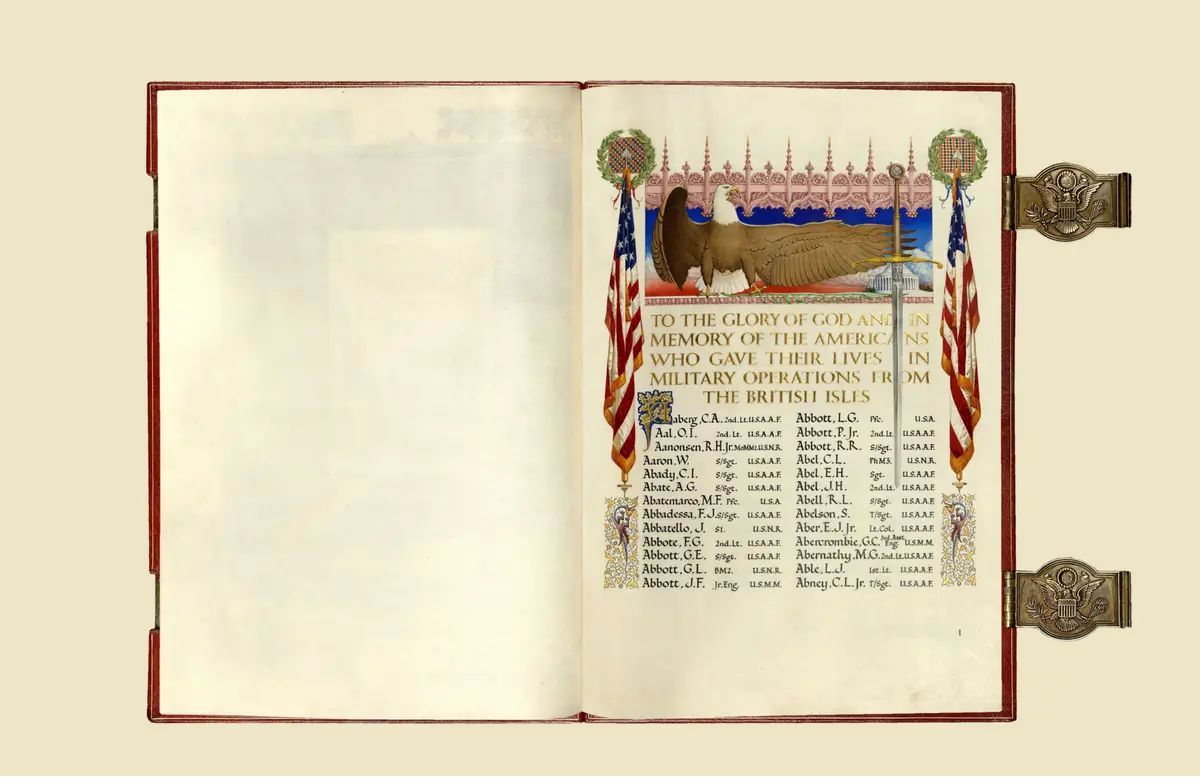 TO THE GLORY OF GOD AND IN
MEMORY OF THE AMERICANS
WHO GAVE THEIR LIVES IN
MILITARY OPERATIONS FROM
THE BRITISH ISLES
Aaberg, C.A. 2nd. Lt. U.S.A.A.F.
Aal, O.I. 2nd. Lt. U.S.A.A.F.
Aanonsen, R.H. Jr. MoMM2. U.S.N.R.
Aaron, W. S/Sgt. U.S.A.A.F.
Abady, C.I. S/Sgt. U.S.A.A.F.
Abate, A.G. S/Sgt. U.S.A.A.F.
Abatemarco, M.F. Pfc. U.S.A.
Abbadessa, F.J. S/Sgt. U.S.A.A.F.
Abbatello, J. S1. U.S.N.R.
Abbote, F.G. 2nd. Lt. U.S.A.A.F.
Abbott, G.E. S/Sgt. U.S.A.A.F.
Abbott, G.L. BM2. U.S.N.R.
Abbott, J.F. Jr. Eng. U.S.M.M.
Abbott, L.G. Pfc. U.S.A.
Abbott, P. Jr. 2nd. Lt. U.S.A.A.F.
Abbott, R.R. S/Sgt. U.S.A.A.F.
Abel, C.L. PhM3. U.S.N.R.
Abel, E.H. Sgt. U.S.A.A.F.
Abel, J.H. 2nd. Lt. U.S.A.A.F.
Abell, R.L. S/Sgt. U.S.A.A.F.
Abelson, S. T/Sgt. U.S.A.A.F.
Aber, E.J. Jr. Lt. Col. U.S.A.A.F.
Abercrombie, G.C. 3rd. Asst. Eng. U.S.M.M.
Abernathy, M.G. 2nd. Lt. U.S.A.A.F.
Able, L.J. 1st. Lt. U.S.A.A.F.
Abney, C.L. Jr. T/Sgt. U.S.A.A.F.
1